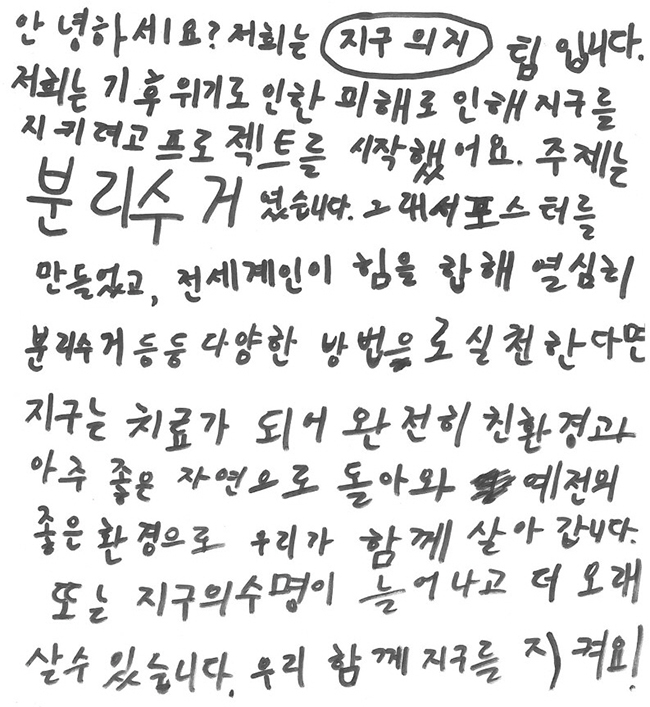 안녕하세요? 저희는 지구 의지 팀 입니다.
저희는 기후위기로 인한 피해로 인해 지구를
지키려고 프로젝트를 시작했어요. 주제는
분리수거 였습니다. 그래서 포스터를
만들었고, 전세계인이 힘을 합해 열심히
분리수거 등등 다양한 방법으로 실천한다면
지구는 치료가 되어 완전히 친환경과
아주 좋은 자연으로 돌아와 예전의
좋은 환경으로 우리가 함께 살아 갑니다.
또는 지구의수명이 늘어나고 더 오래
살수 있습니다. 우리 함께 지구를 지켜요!